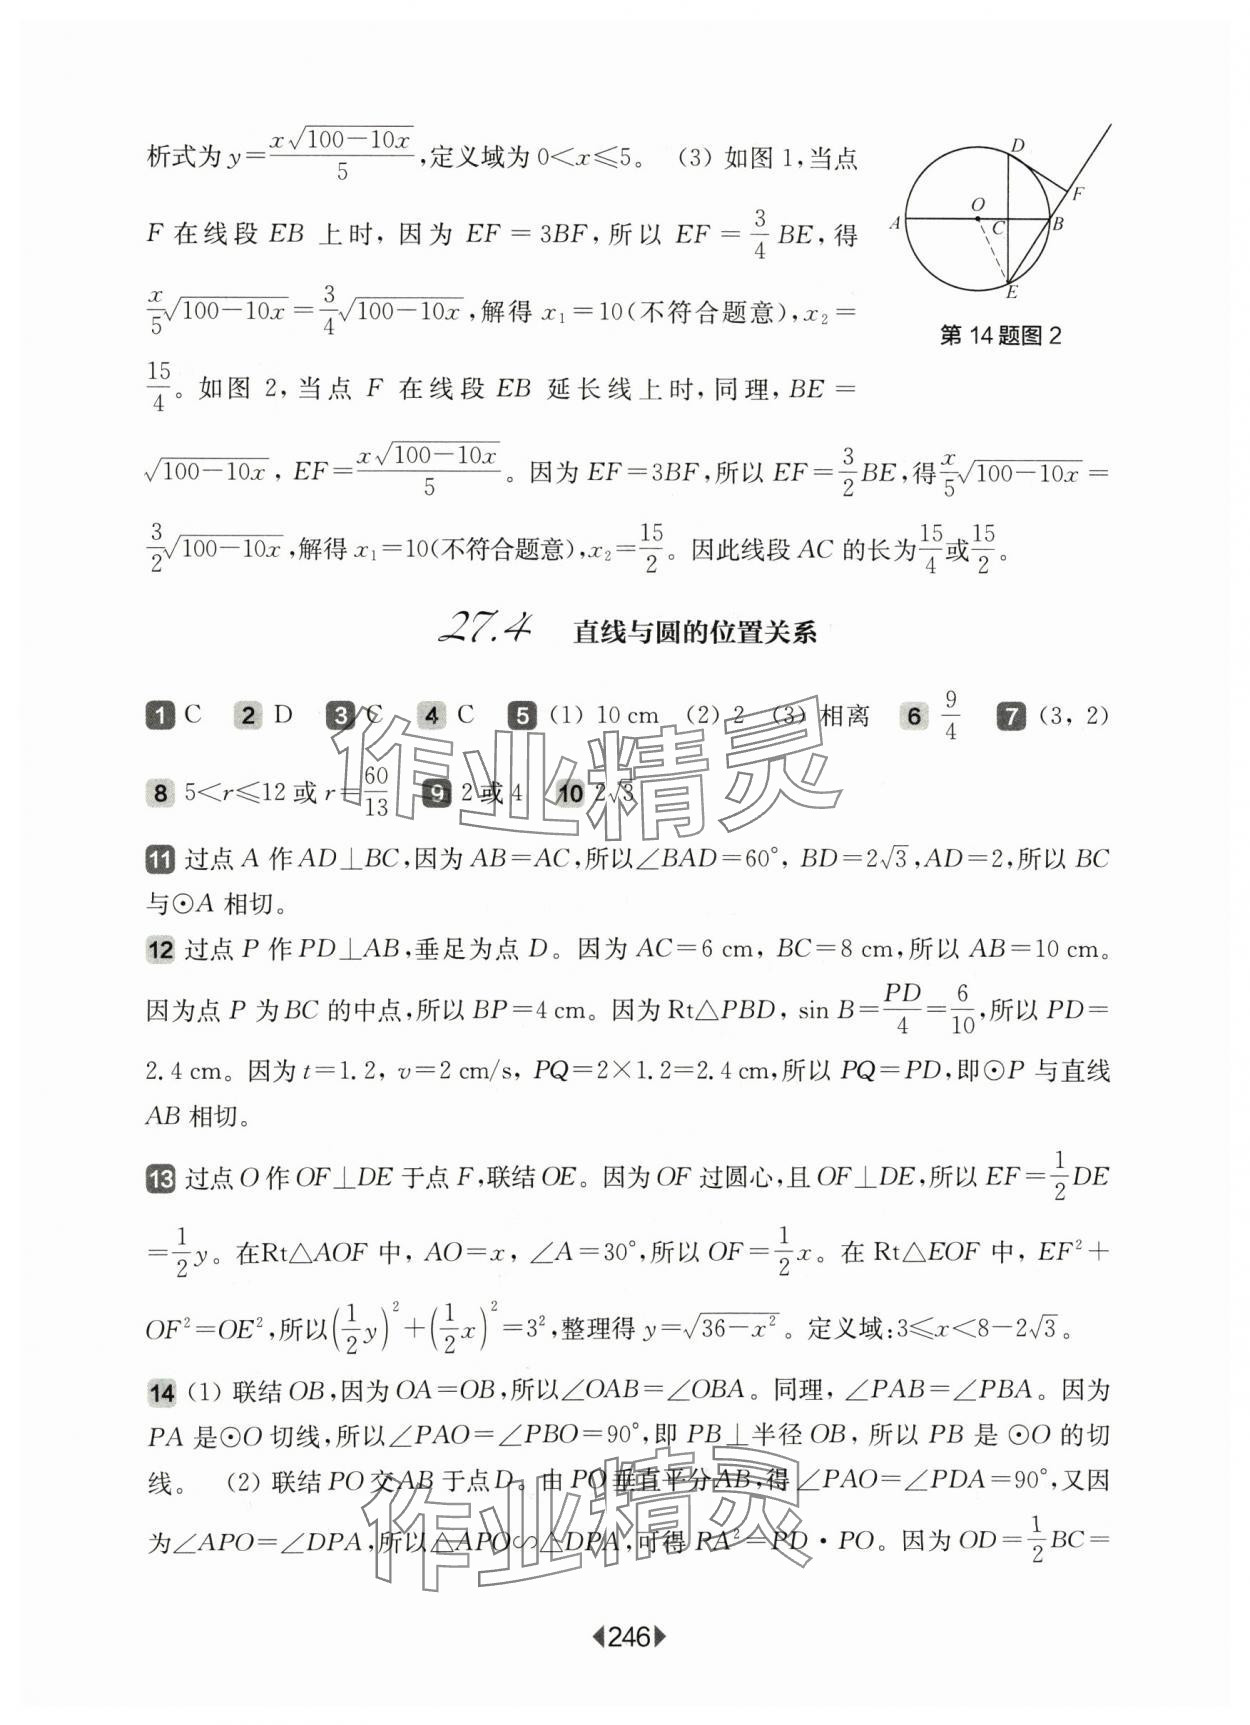 析式为 y=x√(100−10x)/5,定义域为 0<x≤5。 (3) 如图 1,当点
F 在线段 EB 上时, 因为 EF=3BF,所以 EF=3/4 BE,得
x/5 √(100−10x)=3/4 √(100−10x),解得 x₁=10(不符合题意),x₂=
15/4。如图 2,当点 F 在线段 EB 延长线上时,同理,BE=
√(100−10x), EF=x√(100−10x)/5。因为 EF=3BF,所以 EF=3/2 BE,得 x/5 √(100−10x)=
3/2 √(100−10x),解得 x₁=10(不符合题意),x₂=15/2。因此线段 AC 的长为 15/4 或 15/2。
D
F
A
O
C
B
E
第 14题图 2
27.4 直线与圆的位置关系
1 C 2 D 3 C 4 C 5 (1) 10 cm (2) 2 (3) 相离 6 9/4 7 (3, 2)
8 5<r≤12 或 r=60/13 9 2或 4 10 2√3
11 过点 A 作 AD⊥BC,因为 AB=AC,所以∠BAD=60°, BD=2√3,AD=2,所以 BC
与⊙A 相切。
12 过点 P 作 PD⊥AB,垂足为点 D。因为 AC=6 cm, BC=8 cm,所以 AB=10 cm。
因为点 P 为BC 的中点,所以 BP=4 cm。因为 Rt△PBD, sin B=PD/4=6/10,所以 PD=
2.4 cm。因为 t=1.2, v=2 cm/s, PQ=2×1.2=2.4 cm,所以 PQ=PD,即⊙P 与直线
AB 相切。
13 过点 O 作 OF⊥DE 于点 F,联结OE。因为 OF 过圆心,且 OF⊥DE,所以 EF=1/2 DE
=1/2 y。在Rt△AOF 中, AO=x, ∠A=30°,所以 OF=1/2 x。在 Rt△EOF 中, EF²+
OF²=OE²,所以(1/2 y)²+(1/2 x)²=3²,整理得 y=√(36−x²)。定义域:3≤x<8−2√3。
14 (1) 联结 OB,因为 OA=OB,所以∠OAB=∠OBA。同理, ∠PAB=∠PBA。因为
PA 是⊙O 切线,所以∠PAO=∠PBO=90°,即 PB⊥半径 OB, 所以 PB 是 ⊙O 的切
线。 (2) 联结 PO 交AB 于点D。由 PO 垂直平分AB,得 ∠PAO=∠PDA=90°,又因
为∠APO=∠DPA,所以△APO∽△DPA,可得 PA²=PD·PO。因为 OD=1/2 BC=
246
作业精灵
作业精灵